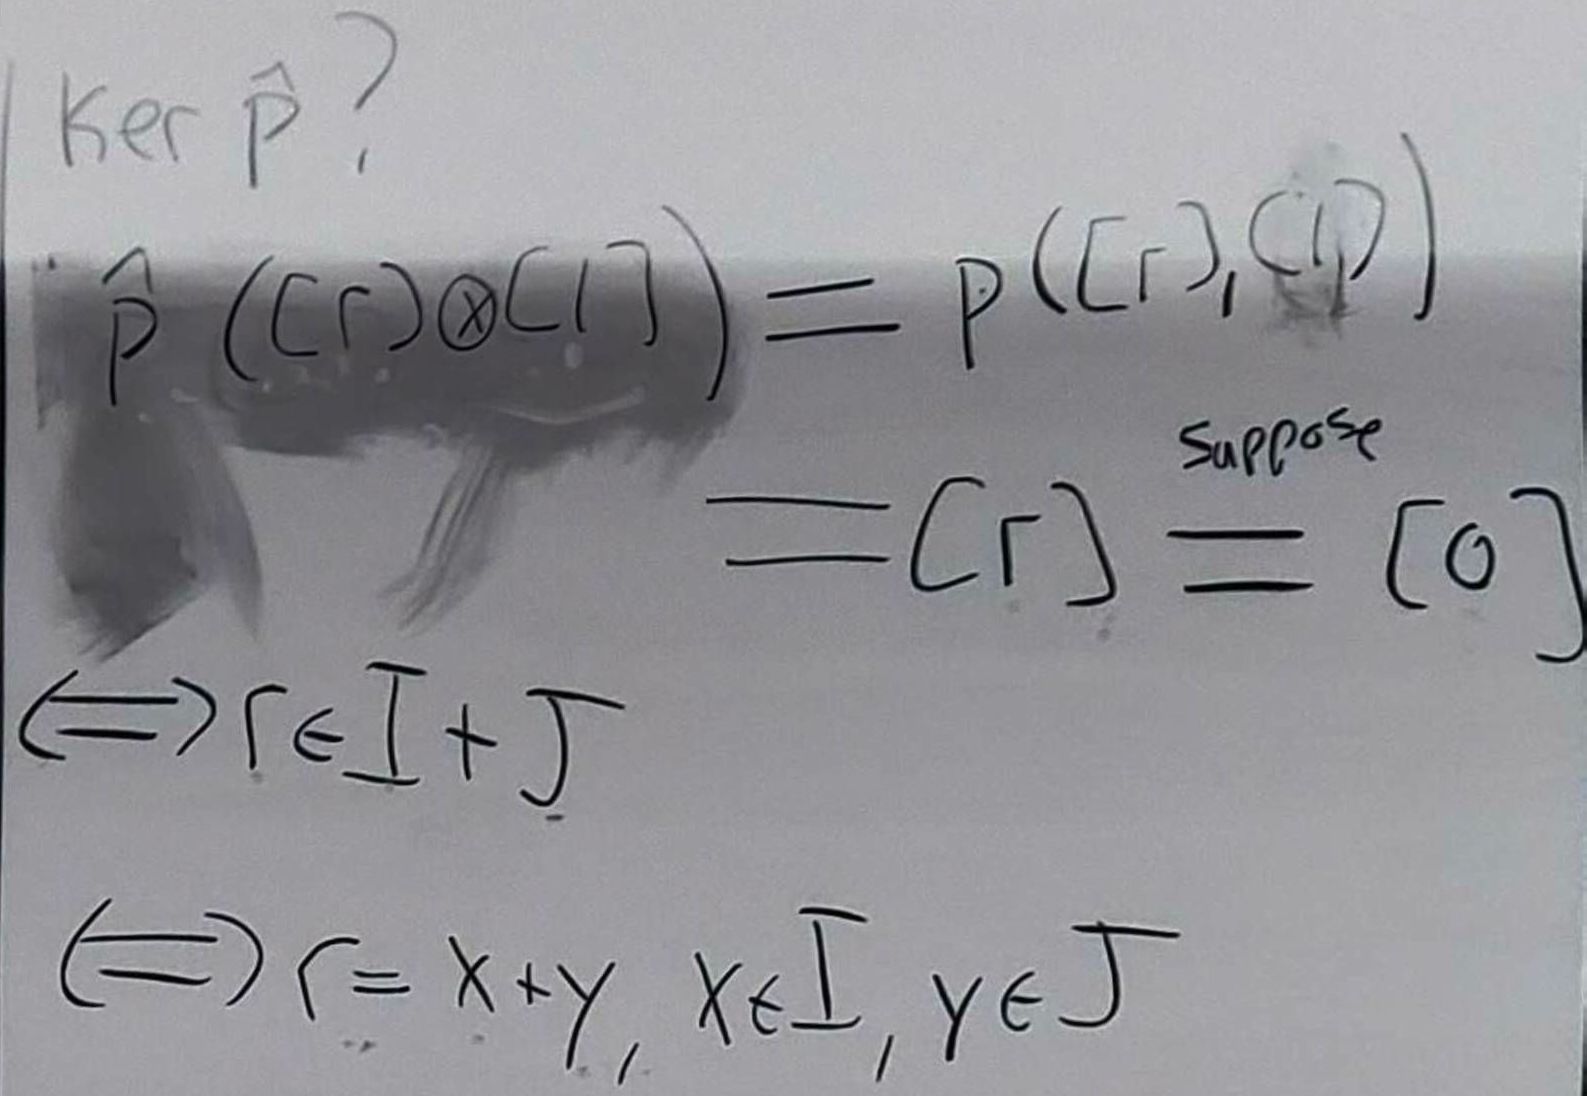 Ker p̂ ?
p̂ ([r]⊗[1]) = p([r],[1])
= [r] suppose = [0]
⟺ r∈I+J
⟺ r= x+y, x∈I, y∈J